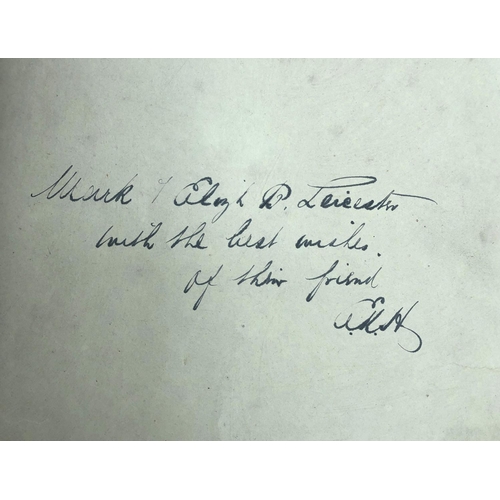 Mark & Elizh P. Leicester
with the best wishes.
of their friend
E.H.H.